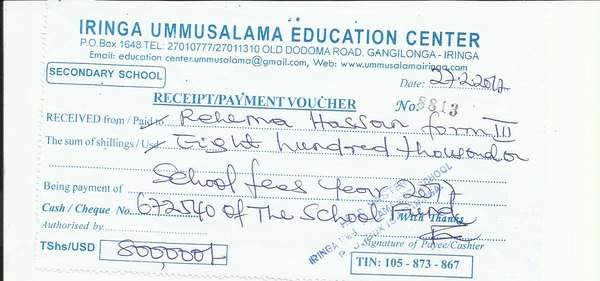 IRINGA UMMUSALAMA EDUCATION CENTER
P.O.Box 1648 TEL: 27010777/27011310 OLD DODOMA ROAD, GANGILONGA - IRINGA
Email: education center.ummusalama@gmail.com, Web: www.ummusalamairinga.com
SECONDARY SCHOOL
Date:
RECEIPT/PAYMENT VOUCHER No: 8813
RECEIVED from / Paid to Rehema Hassan form III
The sum of shillings / Usd Eight hundred thousand
Being payment of School fees Year
Cash / Cheque No. 672540 of The School Fund With Thanks
Authorised by Signature of Payee/Cashier
TShs/USD 800000/-
TIN: 105 - 873 - 867